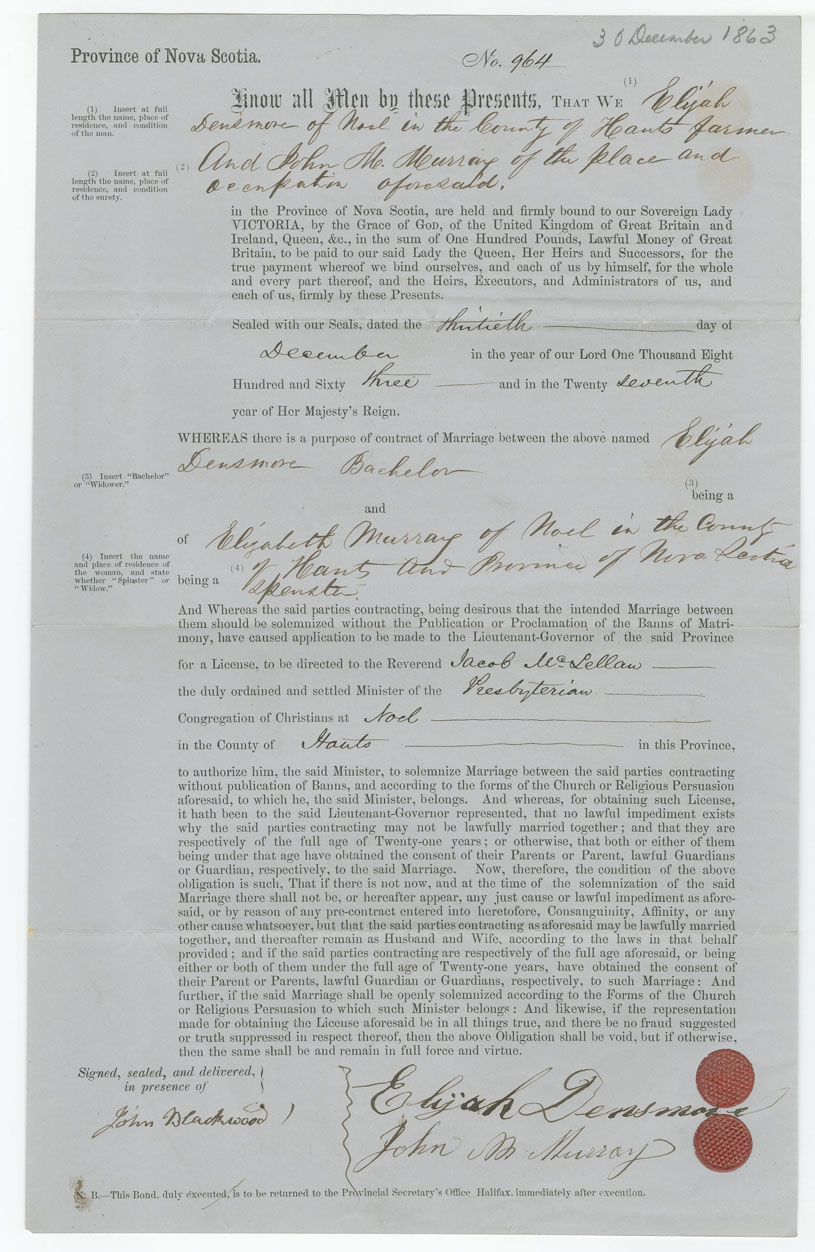 30 December 1863
Province of Nova Scotia.
No. 964
Know all Men by these Presents, THAT WE (1) Elijah
Densmore of Noel in the County of Hants farmer
(1) Insert at full
length the name, place of
residence, and condition
of the man.
(2) And John M. Murray of the place and
occupation aforesaid.
(2) Insert at full
length the name, place of
residence, and condition
of the surety.
in the Province of Nova Scotia, are held and firmly bound to our Sovereign Lady
VICTORIA, by the Grace of GOD, of the United Kingdom of Great Britain and
Ireland, Queen, &c., in the sum of One Hundred Pounds, Lawful Money of Great
Britain, to be paid to our said Lady the Queen, Her Heirs and Successors, for the
true payment whereof we bind ourselves, and each of us by himself, for the whole
and every part thereof, and the Heirs, Executors, and Administrators of us, and
each of us, firmly by these Presents.
Sealed with our Seals, dated the thirtieth day of
December in the year of our Lord One Thousand Eight
Hundred and Sixty three and in the Twenty seventh
year of Her Majesty's Reign.
WHEREAS there is a purpose of contract of Marriage between the above named Elijah
Densmore Bachelor
(3) Insert "Bachelor"
or "Widower."
(3)
being a
and
of Elizabeth Murray of Noel in the County
(4) of Hants and Province of Nova Scotia
being a spenster.
(4) Insert the name
and place of residence of
the woman, and state
whether "Spinster" or
"Widow."
And Whereas the said parties contracting, being desirous that the intended Marriage between
them should be solemnized without the Publication or Proclamation of the Banns of Matri-
mony, have caused application to be made to the Lieutenant-Governor of the said Province
for a License, to be directed to the Reverend Jacob McLellan
the duly ordained and settled Minister of the Presbyterian
Congregation of Christians at Noel
in the County of Hants in this Province,
to authorize him, the said Minister, to solemnize Marriage between the said parties contracting
without publication of Banns, and according to the forms of the Church or Religious Persuasion
aforesaid, to which he, the said Minister, belongs. And whereas, for obtaining such License,
it hath been to the said Lieutenant-Governor represented, that no lawful impediment exists
why the said parties contracting may not be lawfully married together; and that they are
respectively of the full age of Twenty-one years; or otherwise, that both or either of them
being under that age have obtained the consent of their Parents or Parent, lawful Guardians
or Guardian, respectively, to the said Marriage. Now, therefore, the condition of the above
obligation is such, That if there is not now, and at the time of the solemnization of the said
Marriage there shall not be, or hereafter appear, any just cause or lawful impediment as afore-
said, or by reason of any pre-contract entered into heretofore, Consanguinity, Affinity, or any
other cause whatsoever, but that the said parties contracting as aforesaid may be lawfully married
together, and thereafter remain as Husband and Wife, according to the laws in that behalf
provided; and if the said parties contracting are respectively of the full age aforesaid, or being
either or both of them under the full age of Twenty-one years, have obtained the consent of
their Parent or Parents, lawful Guardian or Guardians, respectively, to such Marriage: And
further, if the said Marriage shall be openly solemnized according to the Forms of the Church
or Religious Persuasion to which such Minister belongs: And likewise, if the representation
made for obtaining the License aforesaid be in all things true, and there be no fraud suggested
or truth suppressed in respect thereof, then the above Obligation shall be void, but if otherwise,
then the same shall be and remain in full force and virtue.
Signed, sealed, and delivered,
in presence of
John Blackwood
Elijah Densmore
John M Murray
N. B.—This Bond, duly executed, is to be returned to the Provincial Secretary's Office, Halifax, immediately after execution.